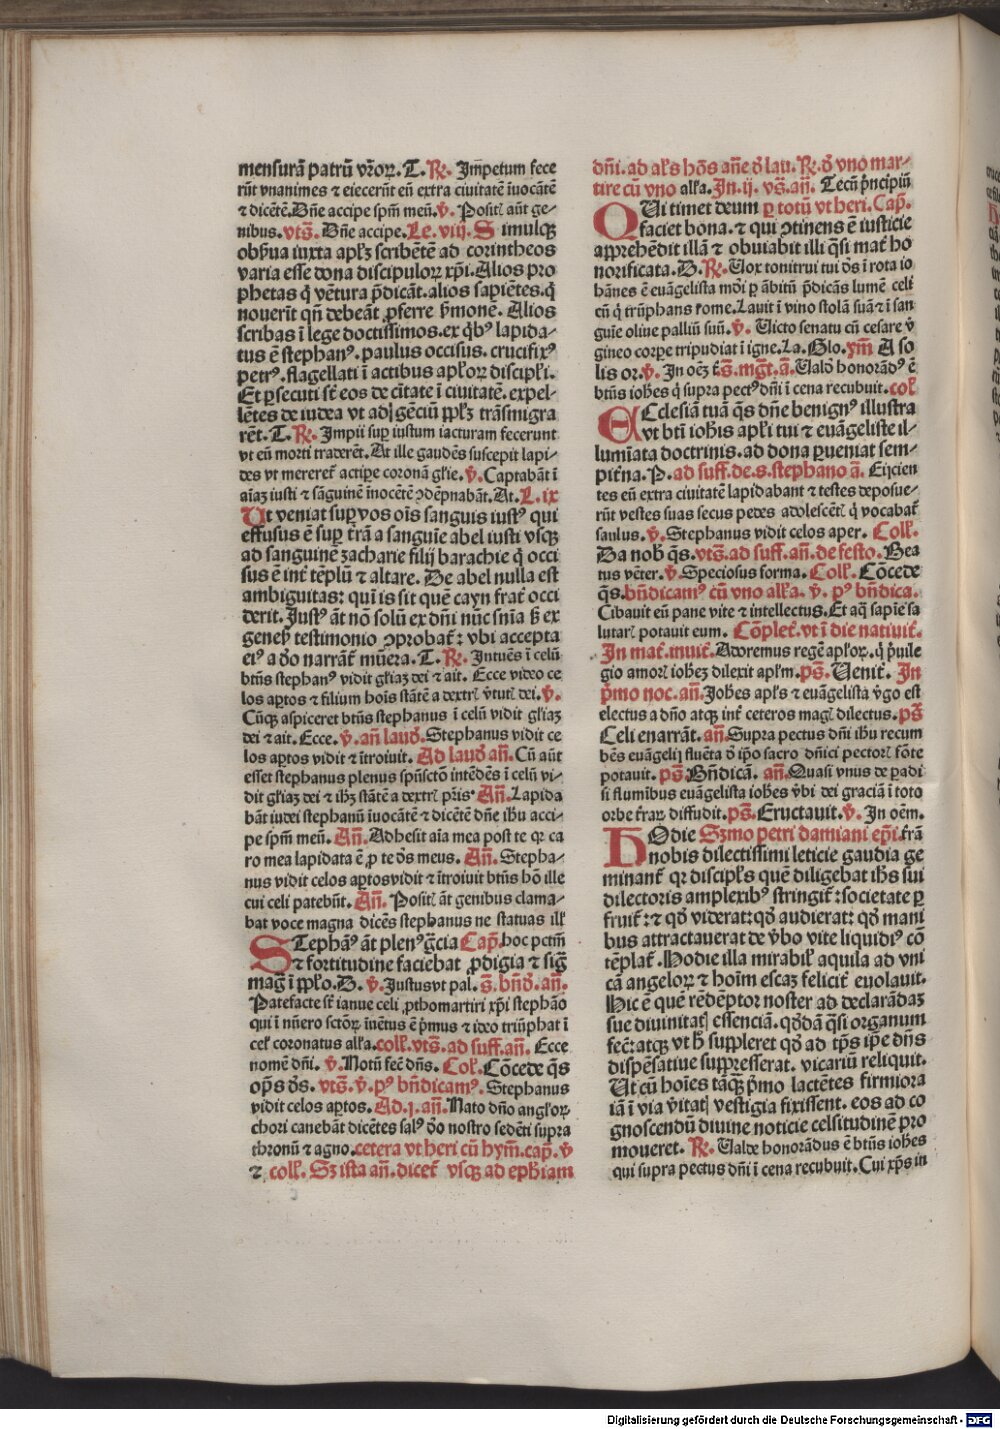 mensurā patrū vr̄oꝝ. T. R̶. Im̄petum fece
rūt vnanimes ⁊ eiecerūt eū extra ciuitatē īuocātē
⁊ dicētē. Dn̄e accipe spm̄ meū. v̄. Positꝭ aūt ge-
nibus. vts̄. Dn̄e accipe. Le. viij. Simulqꝫ
obp̄ua iuxta apl̄ꝫ scribētē ad corintheos
varia esse dona discipuloꝝ xp̄i. Alios pro
phetas q̄ vētura p̄dicāt. alios sapiētes. q̄
nouerīt qn̄ debeāt ꝓferre p̄monē. Alios
scribas ī lege doctissimos. ex qͥbꝰ lapida-
tus ē stephanꝰ. paulus occisus. crucifixꝰ
petrꝰ. flagellati ī actibus apl̄oꝝ discipl̄i.
Et ꝑsecuti st̄ eos de cītate ī ciuitatē. expel-
lētes de iudea vt adꝭ gēciū ppl̄ꝫ trāsmigra
rēt. T. R̶. Impii suꝑ iustum iacturam fecerunt
vt eū morti traderēt. At ille gaudēs suscepit lapi-
des vt mereret̄ accipe coronā gl̄ie. v̄. Captabāt ī
aīaꝫ iusti ⁊ sāguinē īnocētē ꝯdēpnabāt. At. L. ix
Ut veniat suꝑ vos oīs sanguis iustꝰ qui
effusus ē suꝑ t̄rā a sanguīe abel iusti vsqꝫ
ad sanguinē zacharie filij barachie q̄ occi
sus ē int̄ tēplū ⁊ altare. De abel nulla est
ambiguitas: quī is sit quē cayn frat̄ occi
derit. Justꝰ āt nō solū ex dn̄i nūc sn̄ia sꝫ ex
geneꝭ testimonio ꝯprobat̄: vbi accepta
eiꝰ a dō narrāt̄ mūera. T. R̶. Intuēs ī celū
btn̄s stephanꝰ vidit gl̄iaꝫ dei ⁊ ait. Ecce video ce
los aꝑtos ⁊ filium hoīs stātē a dextrꝭ v̄tutꝭ dei. v̄.
Cūqꝫ aspiceret btn̄s stephanus ī celū vidit gl̄iaꝫ
dei ⁊ ait. Ecce. v̄. an̄ laud̄. Stephanus vidit ce
los aꝑtos vidit ⁊ ītroiuit. Ad laud̄ an̄. Cū aūt
esset stephanus plenus spūsctō intēdēs ī celū vi-
dit gl̄iaꝫ dei ⁊ ih̄ꝫ stātē a dextrꝭ pr̄is. An̄. Lapida
bāt iudei stephanū īuocātē ⁊ dicētē dn̄e ih̄u acci-
pe spm̄ meū. An̄. Adhesit aīa mea post te qꝛ ca
ro mea lapidata ē ꝓ te ds̄ meus. An̄. Stepha-
nus vidit celos aꝑtos vidit ⁊ ītroiuit btn̄s hō ille
cui celi patebūt. An̄. Positꝭ āt genibus clama-
bat voce magna dicēs stephanus ne statuas ill̄
Stephāꝰ āt plenꝰ gr̄cia Cap̄. hoc pctm̄
⁊ fortitudine faciebat ꝓdigia ⁊ siḡ
maḡ ī ppl̄o. D. v̄. Justus vt pal. s̄. bn̄d̄. an̄.
Patefacte st̄ ianue celi ꝓthomartiri xp̄i stephāo
qui ī nūero sctōꝝ īuētus ē p̄mus ⁊ ideo triūphat ī
cel̄ coronatus all̄a. coll̄. vts̄. ad suff. an̄. Ecce
nomē dn̄i. v̄. Notū fec̄ dn̄s. Col̄. Cōcede qs̄
op̄s ds̄. vts̄. v̄. pꝰ bn̄dicamꝰ. Stephanus
vidit celos aꝑtos. Ad. j. an̄. Nato dn̄o angl̄oꝝ
chori canebāt dicētes salꝰ dō nostro sedēti supra
thronū ⁊ agno. cetera vt heri cū hym̄. cap̄. v̄
⁊ coll̄. Sꝫ ista an̄. dicet̄ vsqꝫ ad eph̄iam
dn̄i. ad al̄s hōs an̄e ō lau. R̶. ō vno mar-
tire cū vno all̄a. In. ij. vs̄. an̄. Tecū p̄ncipiū
Qui timet deum ꝑ totū vt heri. Cap̄.
faciet bona. ⁊ qui ꝯtinens ē iusticie
apprehēdit illā ⁊ obuiabit illi q̄si mat̄ ho
norificata. D. R̶. Uox tonitrui tui ds̄ ī rota io
hānes ē euāgelista mōi ꝑ ābitū p̄dicās lumē celi
cū q̄ triūphans rome. Lauit ī vino stolā suā ⁊ ī san
guīe oliue palliū suū. v̄. Uicto senatu cū cesare v̄
gineo corpe tripudiat ī igne. La. Glo. ym̄ A so
lis or. v̄. In oēꝫ t̄. s̄. mgt̄. a̅. Ualdꝭ honorādꝰ ē
btn̄s ioh̄es q̄ supra pectꝰ dn̄i ī cena recubuit. col̄
Ecclesiā tuā qs̄ dn̄e benignꝰ illustra
vt bt̄i ioh̄is apl̄i tui ⁊ euāgeliste il-
lumīata doctrinis. ad dona ꝑueniat sem-
pit̄na. P. ad suff. de. s. stephano a̅. Eijcien
tes eū extra ciuitatē lapidabant ⁊ testes deposue-
rūt vestes suas secus pedes adolescētꝭ q̄ vocabat̄
saulus. v̄. Stephanus vidit celos aper. Coll̄.
Da nob̄ qs̄. vts̄. ad suff. an̄. de festo. Bea
tus vēter. v̄. Speciosus forma. Coll̄. Cōcede
qs̄. bn̄dicamꝰ cū vno all̄a. v̄. pꝰ bn̄dica.
Cibauit eū pane vite ⁊ intellectus. Et aq̄ sapīe sa
lutarꝭ potauit eum. Cōplet̄. vt ī die natiuit̄.
In mat̄. inuit̄. Adoremus regē apl̄oꝝ. q̄ p̄uile
gio amorꝭ ioh̄eꝫ dilexit apl̄m. ps̄. Uenit̄. In
p̄mo noc. an̄. Joh̄es apl̄s ⁊ euāgelista v̄go est
electus a dn̄o atqꝫ int̄ ceteros magꝭ dilectus. ps̄
Celi enarrāt. an̄. Supra pectus dn̄i ih̄u recum
bēs euāgelij fluēta d̄ ip̄o sacro dn̄ici pectorꝭ fōte
potauit. ps̄. Bn̄dicā. an̄. Quasi vnus de ꝑadi
si flumībus euāgelista ioh̄es v̄bi dei graciā ī toto
orbe t̄raꝝ diffudit. ps̄. Eructauit. v̄. In oēm.
Hodie Sꝫmo petri damiani ep̄i. frā
nobis dilectissimi leticie gaudia ge
minant̄ qꝛ discipl̄s quē diligebat ih̄s sui
dilectoris amplexibꝰ stringit̄: societate ꝑ
fruit̄: ⁊ qd̄ viderat: qd̄ audierat: qd̄ mani
bus attractauerat de v̄bo vite liquidiꝰ cō
tēplat̄. Hodie illa mirabil̄ aquila ad vni
cā angeloꝝ ⁊ hoīm escaꝫ felicit̄ euolauit.
Hic ē quē redēptor noster ad declarādaꝫ
sue diuinitatꝭ essenciā. qd̄dā q̄si organum
fec̄: atqꝫ vt h̄ suppleret qd̄ ad tp̄s ip̄e dn̄s
dispēsatiue suppresserat. vicariū reliquit.
Ut cū hoīes tāqꝫ p̄mo lactētes firmiora
iā ī via v̄itatꝭ vestigia fixissent. eos ad co
gnoscendū diuine noticie celsitudinē pro
moueret. R̶. Ualde honorādus ē btn̄s ioh̄es
qui supra pectus dn̄i ī cena recubuit. Cui xp̄s in
Digitalisierung gefördert durch die Deutsche Forschungsgemeinschaft - DFG